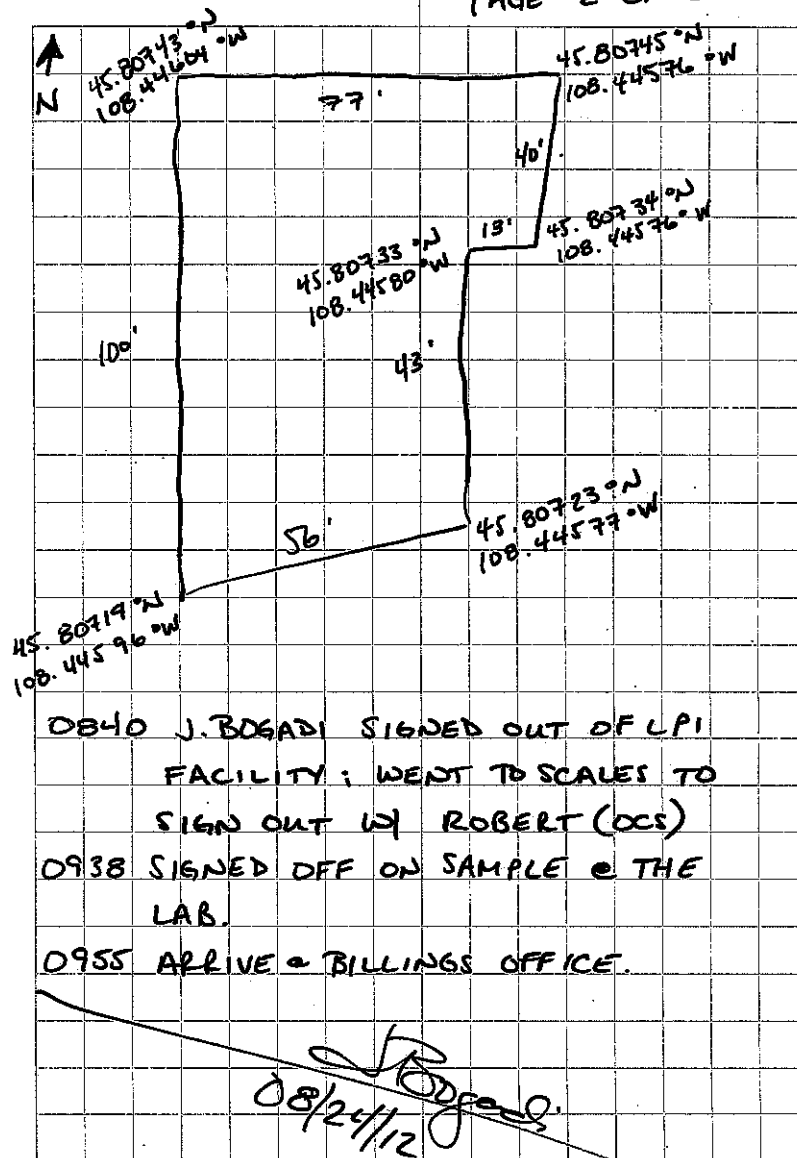 PAGE 2 OF
N
45.80743°N
108.44604°W
77'
45.80745°N
108.44576°W
40'
13'
45.80734°N
108.44576°W
45.80733°N
108.44580°W
100'
43'
45.80723°N
108.44577°W
56'
45.80719°N
108.44596°W
0840 J. BOGADI SIGNED OUT OF LPI
FACILITY; WENT TO SCALES TO
SIGN OUT W/ ROBERT (OCS)
0938 SIGNED OFF ON SAMPLE @ THE
LAB.
0955 ARRIVE @ BILLINGS OFFICE.
JBogadi
08/24/12